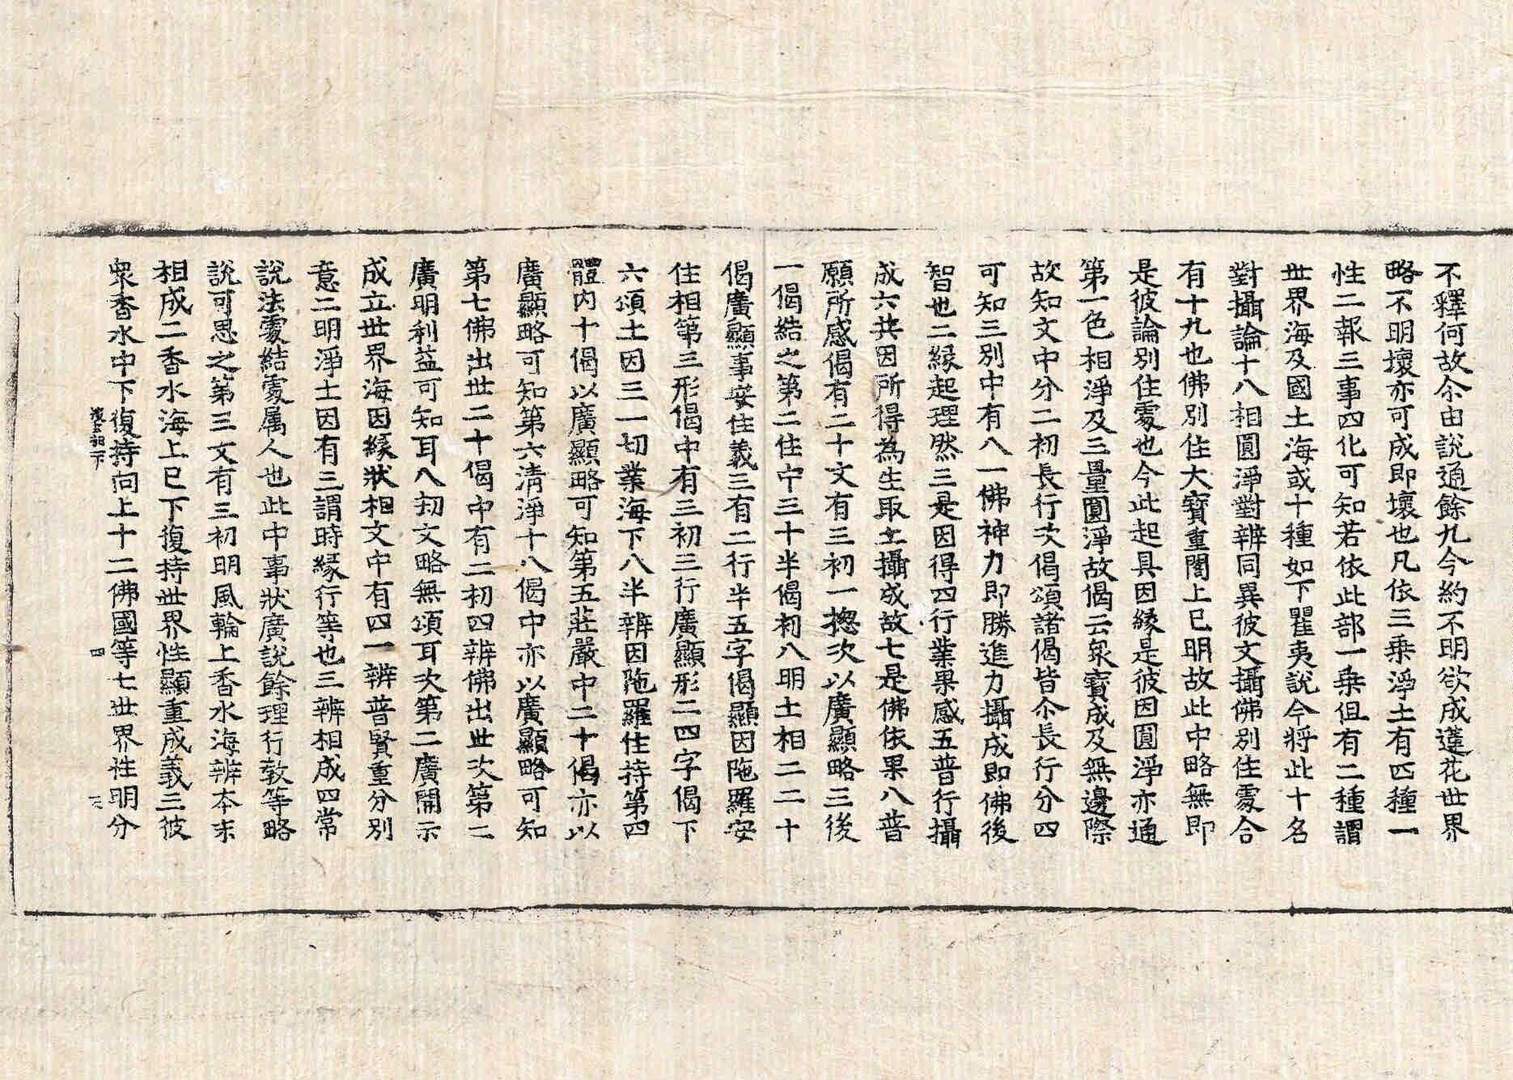 不釋何故尒由說通餘九今約不明欲成蓮花世界
略不明壞亦可成即壞也凡依三乘淨土有四種一
性二報三事四化可知若依此部一乘但有二種謂
世界海及國土海或十種如下瞿夷說今將此十名
對攝論十八相圓淨對辨同異彼文攝佛別住處合
有十九也佛別住大寶重閣上已明故此中略無即
是彼論別住處也今此起具因緣是彼因圓淨亦通
第一色相淨及三量圓淨故偈云衆寶成及無邊際
故知文中分二初長行次偈頌諸偈皆尒長行分四
可知三別中有八一佛神力即勝進力攝成即佛後
智也二緣起理然三是因得四行業果感五普行攝
成六共因所得為生取土攝成故七是佛依果八普
願所感偈有二十文有三初一揔次以廣顯略三後
一偈結之第二住中三十半偈初八明土相二二十
偈廣顯事安住義三有二行半五字偈顯因陁羅安
住相第三形偈中有三初三行廣顯形二四字偈下
六頌土因三一切業海下八半辨因陁羅住持第四
體內十偈以廣顯略可知第五莊嚴中二十偈亦以
廣顯略可知第六清淨十八偈中亦以廣顯略可知
第七佛出世二十偈中有二初四辨佛出世次第二
廣明利益可知耳八刼文略無頌耳次第二廣開示
成立世界海因緣狀相文中有四一辨普賢重分別
意二明淨土因有三謂時緣行等也三辨相成四常
說法處結處属人也此中事狀廣說餘理行教等略
說可思之第三文有三初明風輪上香水海辨本末
相成二香水海上已下復持世界性顯重成義三彼
衆香水中下復持向上十二佛國等七世界性明分
四